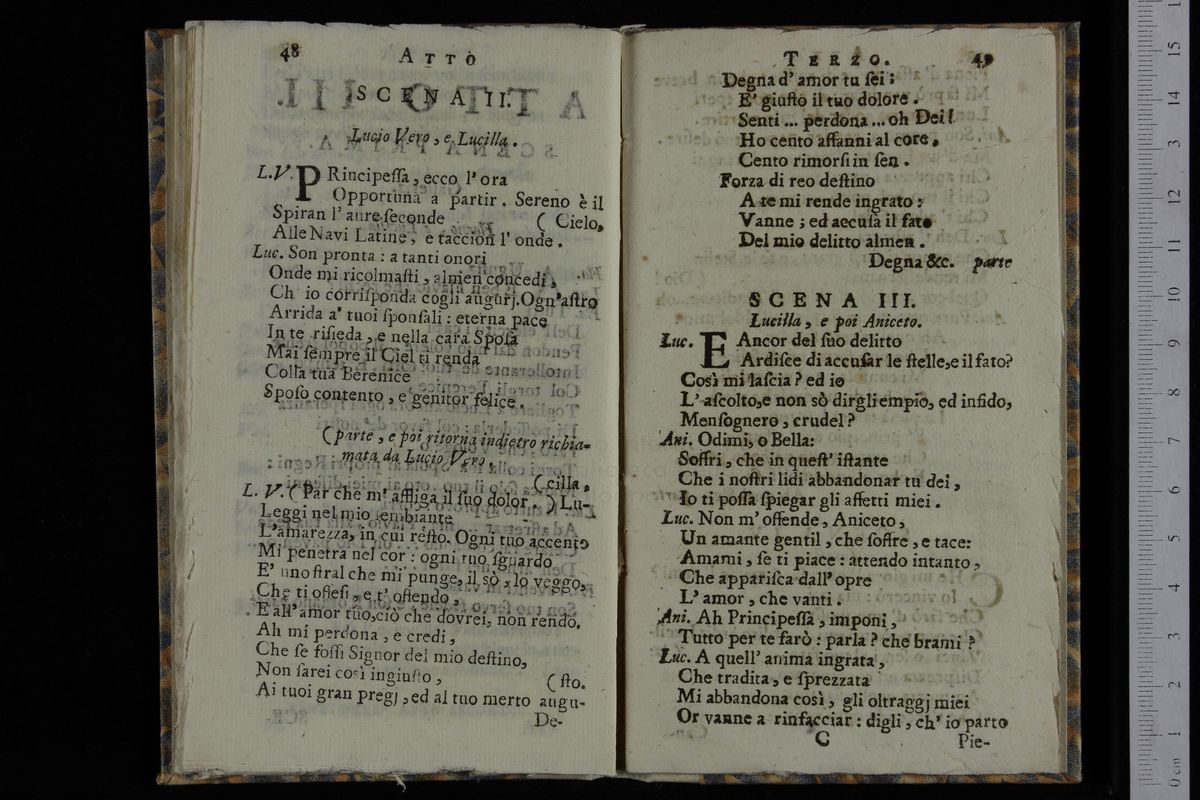 48 ATTO
SCENA II.
Lucio Vero, e Lucilla.
L.V. PRincipeſſa, ecco l'ora
Opportuna a partir. Sereno è il
Spiran l'aure ſeconde (Cielo,
Alle Navi Latine, e taccion l'onde.
Luc. Son pronta: a tanti onori
Onde mi ricolmaſti, almen concedi,
Ch'io corriſponda cogli augurj. Ogn'aſtro
Arrida a' tuoi ſponſali: eterna pace
In te riſieda, e nella cara Spoſa
Mai ſempre il Ciel ti renda
Colla tua Berenice
Spoſo contento, e genitor felice.
(parte, e poi ritorna indietro richia-
mata da Lucio Vero.
(cilla,
L. V. (Par che m'affliga il ſuo dolor.) Lu-
Leggi nel mio ſembiante
L'amarezza, in cui reſto. Ogni tuo accento
Mi penetra nel cor: ogni tuo ſguardo
E' uno ſtral che mi punge, il sò, lo veggo,
Che ti offeſi, e t'offendo,
E all'amor tuo, ciò che dovrei, non rendo.
Ah mi perdona, e credi,
Che ſe foſſi Signor del mio deſtino,
Non ſarei così ingiuſto, (ſto.
Ai tuoi gran pregj, ed al tuo merto augu-
De-
TERZO. 49
Degna d'amor tu ſei:
E' giuſto il tuo dolore.
Senti... perdona... oh Dei!
Ho cento affanni al core,
Cento rimorſi in ſen.
Forza di reo deſtino
A te mi rende ingrato:
Vanne; ed accuſa il fato
Del mio delitto almen.
Degna &c. parte
SCENA III.
Lucilla, e poi Aniceto.
Luc. E Ancor del ſuo delitto
Ardiſce di accuſar le ſtelle, e il fato?
Così mi laſcia? ed io
L'aſcolto, e non sò dirgli empio, ed infido,
Menſognero, crudel?
Ani. Odimi, o Bella:
Soffri, che in queſt'iſtante
Che i noſtri lidi abbandonar tu dei,
Io ti poſſa ſpiegar gli affetti miei.
Luc. Non m'offende, Aniceto,
Un amante gentil, che ſoffre, e tace:
Amami, ſe ti piace: attendo intanto,
Che appariſca dall'opre
L'amor, che vanti.
Ani. Ah Principeſſa, imponi,
Tutto per te farò: parla? che brami?
Luc. A quell'anima ingrata,
Che tradita, e ſprezzata
Mi abbandona così, gli oltraggj miei
Or vanne a rinfacciar: digli, ch'io parto
C Pie-